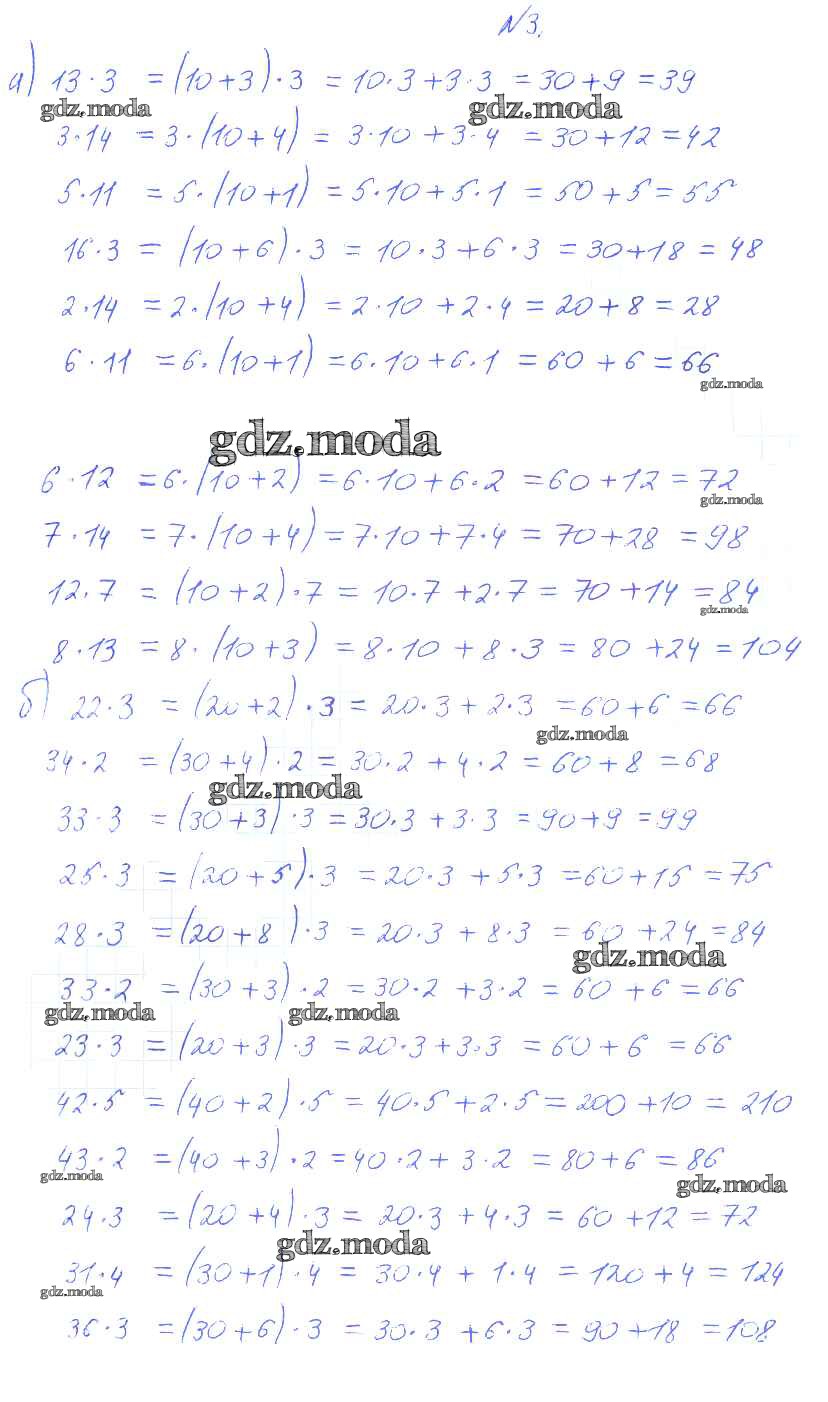 №3.
а) 13·3 = (10+3)·3 = 10·3+3·3 = 30+9 = 39
gdz.moda gdz.moda
3·14 = 3·(10+4) = 3·10+3·4 = 30+12 = 42
5·11 = 5·(10+1) = 5·10+5·1 = 50+5 = 55
16·3 = (10+6)·3 = 10·3+6·3 = 30+18 = 48
2·14 = 2·(10+4) = 2·10+2·4 = 20+8 = 28
6·11 = 6·(10+1) = 6·10+6·1 = 60+6 = 66
gdz.moda
gdz.moda
6·12 = 6·(10+2) = 6·10+6·2 = 60+12 = 72
gdz.moda
7·14 = 7·(10+4) = 7·10+7·4 = 70+28 = 98
12·7 = (10+2)·7 = 10·7+2·7 = 70+14 = 84
gdz.moda
8·13 = 8·(10+3) = 8·10+8·3 = 80+24 = 104
б) 22·3 = (20+2)·3 = 20·3+2·3 = 60+6 = 66
gdz.moda
34·2 = (30+4)·2 = 30·2+4·2 = 60+8 = 68
gdz.moda
33·3 = (30+3)·3 = 30·3+3·3 = 90+9 = 99
25·3 = (20+5)·3 = 20·3+5·3 = 60+15 = 75
28·3 = (20+8)·3 = 20·3+8·3 = 60+24 = 84
gdz.moda
33·2 = (30+3)·2 = 30·2+3·2 = 60+6 = 66
gdz.moda gdz.moda
23·3 = (20+3)·3 = 20·3+3·3 = 60+6 = 66
42·5 = (40+2)·5 = 40·5+2·5 = 200+10 = 210
43·2 = (40+3)·2 = 40·2+3·2 = 80+6 = 86
gdz.moda gdz.moda
24·3 = (20+4)·3 = 20·3+4·3 = 60+12 = 72
gdz.moda
31·4 = (30+1)·4 = 30·4+1·4 = 120+4 = 124
gdz.moda
36·3 = (30+6)·3 = 30·3+6·3 = 90+18 = 108